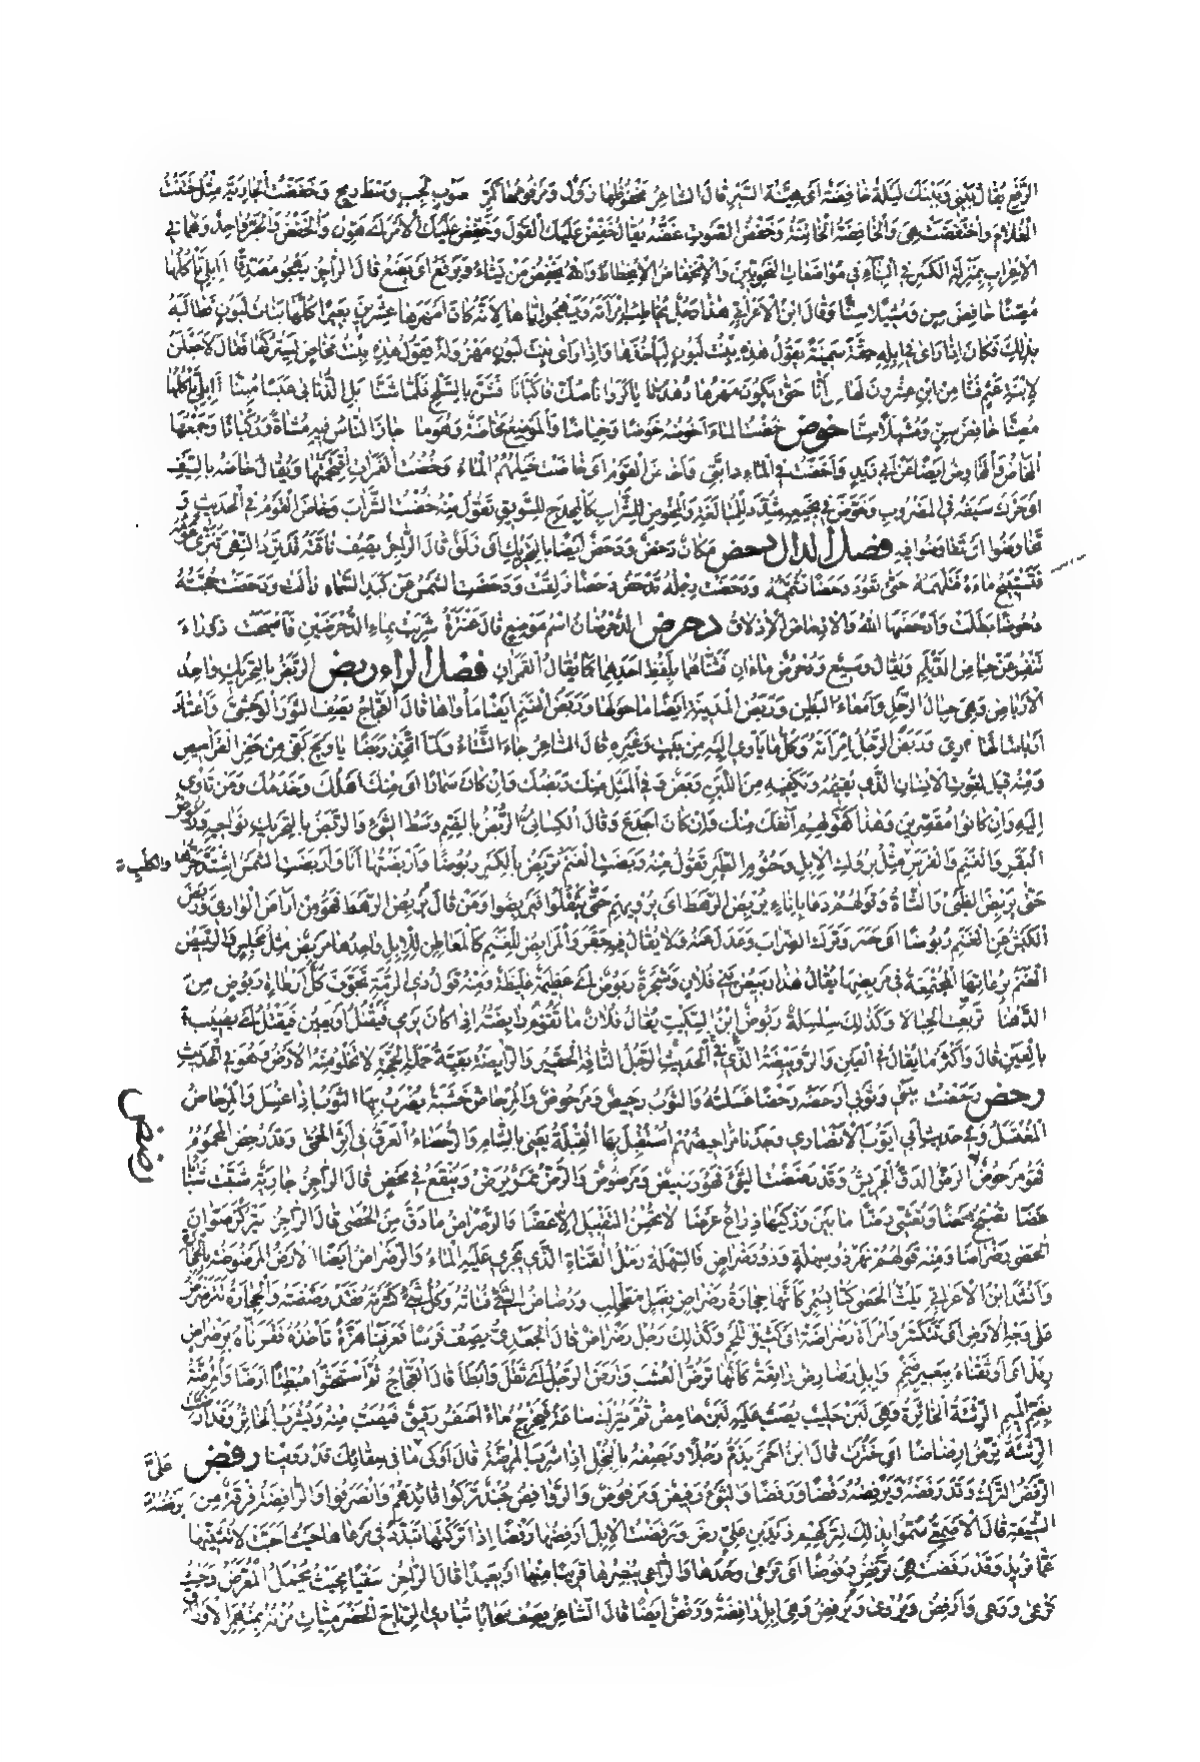 الرفع يقال بيني وبينك ليلة خافضة اى هينة السير قال الشاعر مخفوضها زول ومرفوعها كمرّ صوب لجب وسط ريح وخفضت الجارية مثل ختنت
الغلام واختفضت هى والخافضة الخاتنة وخفض الصوت غضّه يقال خفّض عليك القول وخفّض عليك الامر اى هوّن والخفض والجر واحد وهما فى
الاعراب بمنزلة الكسر فى البناء فى مواصفات النحويين والانخفاض الانحطاط والله يخفض من يشاء ويرفع اى يضع قال الراجز يهجو مصدّقا أ ابلى تأكلها
مصنّا خافض سن ومشيلا سنّا وقال ابن الاعرابى هذا رجل يخاطب امرأته ويهجو اباها لانه كان امهرها عشرين بعيرا كلها بنات لبون فطالبه
بذلك فكان اذا رأى فى ابله حقة سمينة يقول هذه بنت لبون ليأخذها واذا رأى بنت لبون مهزولة يقول هذه بنت مخاض ليتركها فقال لاجعلن
لابنة عثم فنّا من اين عشرون لها من أنّى حتى يكون مهرها دهدنّا يا كروانا صك فاكبأنّا فشنّ بالسلح فلما شنّا بل الذنابى عبسا مبنّا أ ابلى تأكلها
مصنّا خافض سن ومشيلا سنّا خوض خضت الماء اخوضه خوضا وخياضا والموضع مخاضة وهو ما جاز الناس فيه مشاة وركبانا وجمعها
المخاض والمخاوض ايضا عن ابى زيد واخضت فى الماء دابتى واخاض القوم اى خاضت خيلهم الماء وخضت الغمرات اقتحمتها ويقال خاضه بالسيف
اى حرك سيفه فى المضروب وخوّض فى نجيعه شدّد للمبالغة والمخوض للشراب كالمجدح للسويق تقول منه خضت الشراب وخاض القوم فى الحديث و
تخاوضوا اى تفاوضوا فيه فصل الدال دحض مكان دحض ودحض ايضا بالتحريك اى زلق قال الراجز يصف ناقته قد ترد النهى تنزّى عومه
فتستبيح ماءه فتلهمه حتى يعود دحضا تشمّمه ودحضت رجله تدحض دحضا زلقت ودحضت الشمس عن كبد السماء زالت ودحضت حجته
دحوضا بطلت وادحضها الله والادحاض الازلاق دحرض الدحرضان اسم موضع قال عنترة شربت بماء الدحرضين فاصبحت زوراء
تنفر عن حياض الديلم ويقال وسيع ودحرض ماءان فثنّاهما بلفظ احدهما كما يقال القمران فصل الراء ربض الربض بالتحريك واحد
الارباض وهى حبال الرحل وامعاء البطن وربض المدينة ايضا ما حولها وربض الغنم ايضا مأواها قال العجاج يصف الثور الوحشى واعتاد
ارباضا لها آرىّ وربض الرجل امرأته وكل ما يأوى اليه من بيت وغيره قال الشاعر جاء الشتاء ولما اتخذ ربضا يا ويح كفى من حفر القراميص
ومنه قيل لقوت الانسان الذى يقيمه ويكفيه من اللبن ربض وفى المثل منك ربضك وان كان سمارا اى منك اهلك وخدمك ومن تأوى
اليه وان كانوا مقصرين وهذا كقولهم انفك منك وان كان اجدع وقال الكسائى الربض بالضم وسط الشئ والربض بالتحريك نواحيه وربوض
البقر والغنم والفرس مثل بروك الابل وجثوم الطير تقول منه ربضت الغنم تربض بالكسر ربوضا واربضتها انا واربضت الشمس اشتد حرها والكلب
حتى يربض الظبى والشاة وقولهم دعا باناء يربض الرهط اى يرويهم حتى يثقلوا فيربضوا ومن قال يريض الرهط فهو من اراض الوادى وربض
الكبش عن الغنم ربوضا اى حسر وترك الضراب وعدل عنه ولا يقال فيه جفر والمرابض للغنم كالمعاطن للابل واحدها مربض مثل مجلس والربيض
الغنم برعاتها المجتمعة فى مربضها يقال هذا ربيض بنى فلان وشجرة ربوض اى عظيمة غليظة ومنه قول ذى الرمة تجوف كل ارطاة ربوض من
الدهنا تفرعت الحبالا وكذلك سلسلة ربوض ابن السكيت يقال فلان ما تقوم رابضته اذا كان يرمى فيقتل او يعين فيقتل اى يصيب
بالعين قال واكثر ما يقال فى العين والرويبضة الذى فى الحديث الرجل التافه الحقير والرابضة بقية حملة الحجة لا تخلو منه الارض وهو فى الحديث
رحض رحضت يدى وثوبى ارحضه رحضا غسلته والثوب رحيض ومرحوض والمرحاض خشبة يضرب بها الثوب اذا غسل والمرحاض
المغتسل وفى حديث ابى ايوب الانصارى وجدنا مراحيضهم استقبل بها القبلة يعنى بالشام والرحضاء العرق فى اثر الحمى وقد رحض المحموم
فهو مرحوض رضض الرض الدق الجريش وقد رضضت الشئ فهو رضيض ومرضوض والرض تمر يرض وينقع فى محض قال الراجز جارية شبّت شبابا
غضا تصبح محضا وتعشى رضا ما بين وركيها ذراع عرضا لا تحسن التقبيل الا عضا والرضراض ما دق من الحصى قال الراجز يتركن صوان
الحصى رضراضا ومنه قولهم نهر ذو سهلة وذو رضراض فالسهلة رمل القناة الذى يجرى عليه الماء والرضراض ايضا الارض المرضوضة بالحجارة
وانشد ابن الاعرابى يلت الحصى لتا بسمر كأنها حجارة رضراض بغيل مطحلب ورضاض الشئ فتاته وكل شئ كسرته فقد رضضته والحجارة تترضرض
على وجه الارض اى تتكسر وامرأة رضراضة اى كثيرة اللحم وكذلك رجل رضراض قال الجعدى يصف فرسا فعرفنا هزة تأخذه فقرناه برضراض
رفل اى اوثقناه ببعير ضخم وابل رضارض راتعة كأنها ترض العشب وارض الرجل اى ثقل وابطأ قال العجاج ثم استحثوا مبطئا ارضا والمرضة
بضم الميم الرثيئة الخاثرة وهى لبن حليب يصب عليه لبن حامض ثم يترك ساعة فيخرج ماء اصفر رقيق فيصب منه ويشرب الخاثر وقد ارضت
الرثيئة ترض ارضاضا اى خثرت قال ابن احمر يذم رجلا ويصفه بالبخل اذا شرب المرضة قال اوكى على ما فى سقائك قد روينا رفض
الرفض الترك وقد رفضه يرفضه رفضا ورفضا والشئ رفيض ومرفوض والروافض جند تركوا قائدهم وانصرفوا والرافضة فرقة من
الشيعة قال الاصمعى سموا بذلك لتركهم زيد بن على رض ورفضت الابل ارفضها رفضا اذا تركتها تبدد فى مرعاها حيث احبت لا تثنيها
عما تريد وقد رفضت هى ترفض رفوضا اى ترعى وحدها والراعى يبصرها قريبا منها او بعيدا قال الراجز سقيا بحيث يهمل المعرض وحيث
يرعى ورعى وارفض ويروى ويرفض وهى ابل رافضة ورفض ايضا قال الشاعر يصف سحابا تبارى الرياح الحضرميات مزنه بمنهمر الارواق